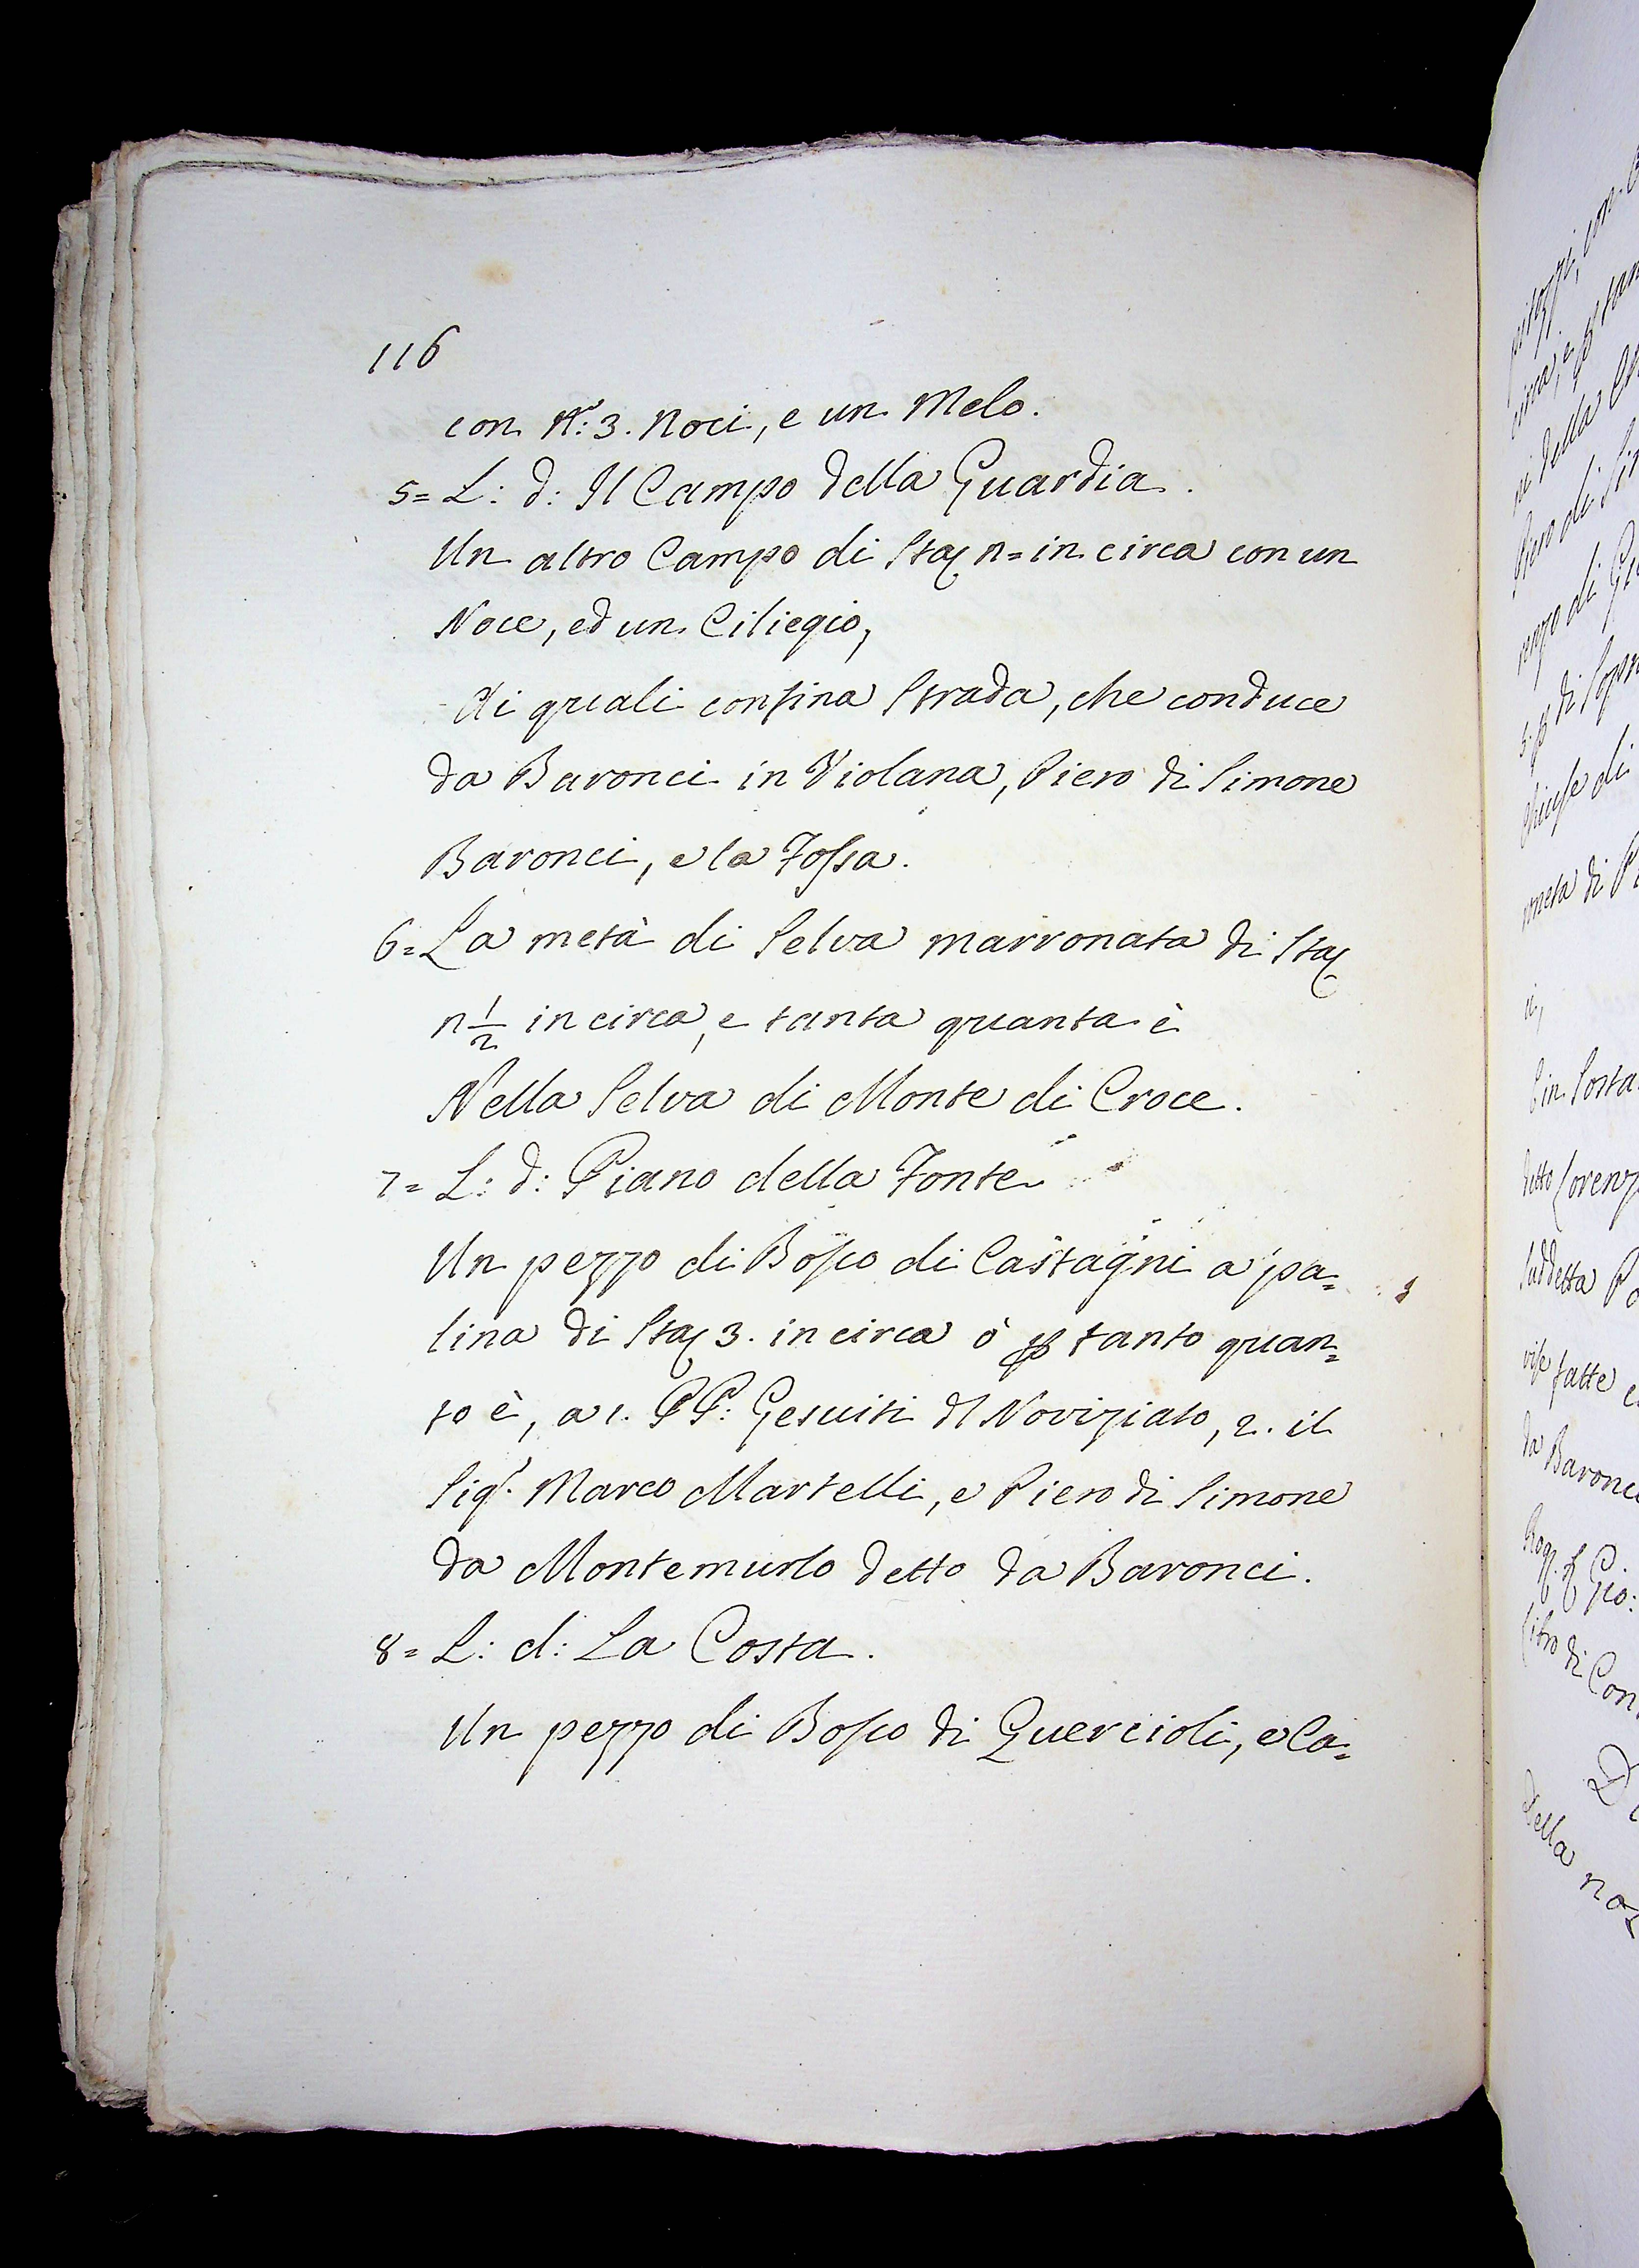 116
con N.º: 3. Noci, e un Melo.
5= L: d: Il Campo della Guardia.
Un altro Campo di Sta: n= in circa con un
Noce, ed un Ciliegio,
Ai quali confina Strada, che conduce
da Baronci in Violana, Piero di Simone
Baronci, e la Fossa.
6= La metà di Selva marronata di Sta:
n 1/2 in circa, e tanta quanta è
Nella Selva di Monte di Croce.
7= L: d: Piano della Fonte
Un pezzo di Bosco di Castagni a pa=
lina di Sta: 3. in circa ò p tanto quan=
to è, a 1. PP: Gesuiti dl Noviziato, 2. il
Sigr. Marco Martelli, e Piero di Simone
da Montemurlo detto da Baronci.
8= L: d: La Costa.
Un pezzo di Bosco di Quercioli, e Ca=
ni della
Piero di
di Sopra
chiuse di
di
in Costa
detto Lorenz
Suddetta
vise fatte e
da Baronci
Rog. Gio:
Libro di Con
della